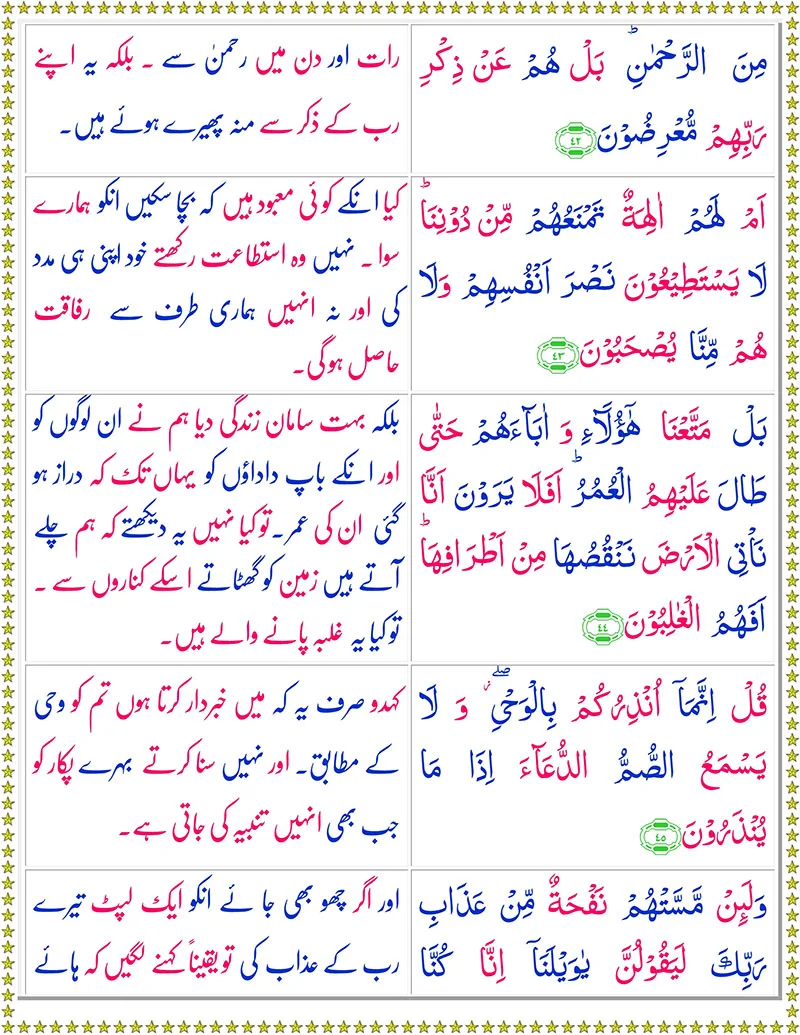 مِنَ الرَّحْمٰنِ ؕ بَلْ هُمْ عَنْ ذِكْرِ
رَبِّهِمْ مُّعْرِضُوْنَ ﴿۴۲﴾
رات اور دن میں رحمنٰ سے ۔ بلکہ یہ اپنے
رب کے ذکر سے منہ پھیرے ہوئے ہیں۔
اَمْ لَهُمْ اٰلِهَةٌ تَمْنَعُهُمْ مِّنْ دُوْنِنَا ؕ
لَا يَسْتَطِيْعُوْنَ نَصْرَ اَنْفُسِهِمْ وَلَا
هُمْ مِّنَّا يُصْحَبُوْنَ ﴿۴۳﴾
کیا انکے کوئی معبود ہیں کہ بچا سکیں انکو ہمارے
سوا ۔ نہیں وہ استطاعت رکھتے خود اپنی ہی مدد
کی اور نہ انہیں ہماری طرف سے رفاقت
حاصل ہوگی۔
بَلْ مَتَّعْنَا هٰٓؤُلَآءِ وَ اٰبَآءَهُمْ حَتّٰى
طَالَ عَلَيْهِمُ الْعُمُرُ ؕ اَفَلَا يَرَوْنَ اَنَّا
نَاْتِى الْاَرْضَ نَنْقُصُهَا مِنْ اَطْرَافِهَا ؕ
اَفَهُمُ الْغٰلِبُوْنَ ﴿۴۴﴾
بلکہ بہت سامان زندگی دیا ہم نے ان لوگوں کو
اور انکے باپ داداؤں کو یہاں تک کہ دراز ہو
گئی ان کی عمر۔ تو کیا نہیں یہ دیکھتے کہ ہم چلے
آتے ہیں زمین کو گھٹاتے اسکے کناروں سے ۔
تو کیا یہ غلبہ پانے والے ہیں۔
قُلْ اِنَّمَاۤ اُنْذِرُكُمْ بِالْوَحْىِ ۖ وَ لَا
يَسْمَعُ الصُّمُّ الدُّعَآءَ اِذَا مَا
يُنْذَرُوْنَ ﴿۴۵﴾
کہدو صرف یہ کہ میں خبردار کرتا ہوں تم کو وحی
کے مطابق۔ اور نہیں سنا کرتے بہرے پکار کو
جب بھی انہیں تنبیہ کی جاتی ہے۔
وَلَئِنْ مَّسَّتْهُمْ نَفْحَةٌ مِّنْ عَذَابِ
رَبِّكَ لَيَقُوْلُنَّ يٰوَيْلَنَاۤ اِنَّا كُنَّا
اور اگر چھو بھی جائے انکو ایک لپٹ تیرے
رب کے عذاب کی تو یقیناً کہنے لگیں کہ ہائے